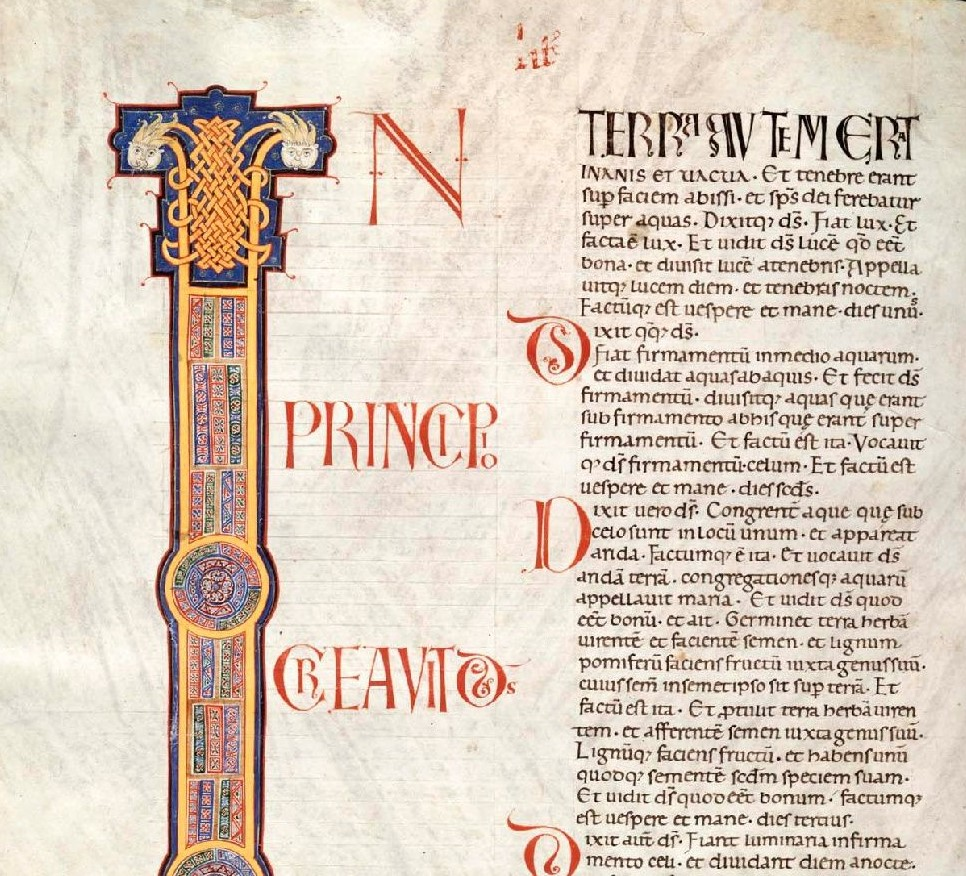 IN
PRINCIPIO
CREAVIT DS
TERRA AUTEM ERAT
INANIS ET UACUA · Et tenebre erant
sup faciem abissi · et sp̄s dei ferebatur
super aquas · Dixitq; d̄s · Fiat lux · Et
facta ē lux · Et uidit d̄s lucē qd̄ eēt
bona · et diuisit lucē a tenebris · Appella
uitq; lucem diem · et tenebras noctem ·
Factūq; est uespere et mane · dies unus ·
Dixit qq; d̄s ·
Fiat firmamentū in medio aquarum ·
et diuidat aquas ab aquis · Et fecit d̄s
firmamentū · diuisitq; aquas quę erant
sub firmamento ab his quę erant super
firmamentū · Et factū est ita · Vocauit
q; d̄s firmamentū celum · Et factū est
uespere et mane · dies sc̄ds ·
Dixit uero d̄s · Congrent̄ aque quę sub
celo sunt in locū unum · et appareat
arida · Factumq; ē ita · Et uocauit d̄s
aridā terrā · congregationesq; aquarū
appellauit maria · Et uidit d̄s quod
eēt bonū · et ait · Germinet terra herbā
uirentē et facientē semen · et lignum
pomiferū faciens fructū iuxta genus suū ·
cuius sem̄ in semetipso sit sup terrā · Et
factū est ita · Et ꝓtulit terra herbā uiren
tem · et afferentē semen iuxta genus suū ·
Lignūq; faciens fructū · et habens unū
quodq; sementē sc̄dm speciem suam ·
Et uidit d̄s quod eēt bonum · factumq;
est uespere et mane · dies tertius ·
Dixit aut̄ d̄s · Fiant luminaria in firma
mento celi · et diuidant diem a nocte ·